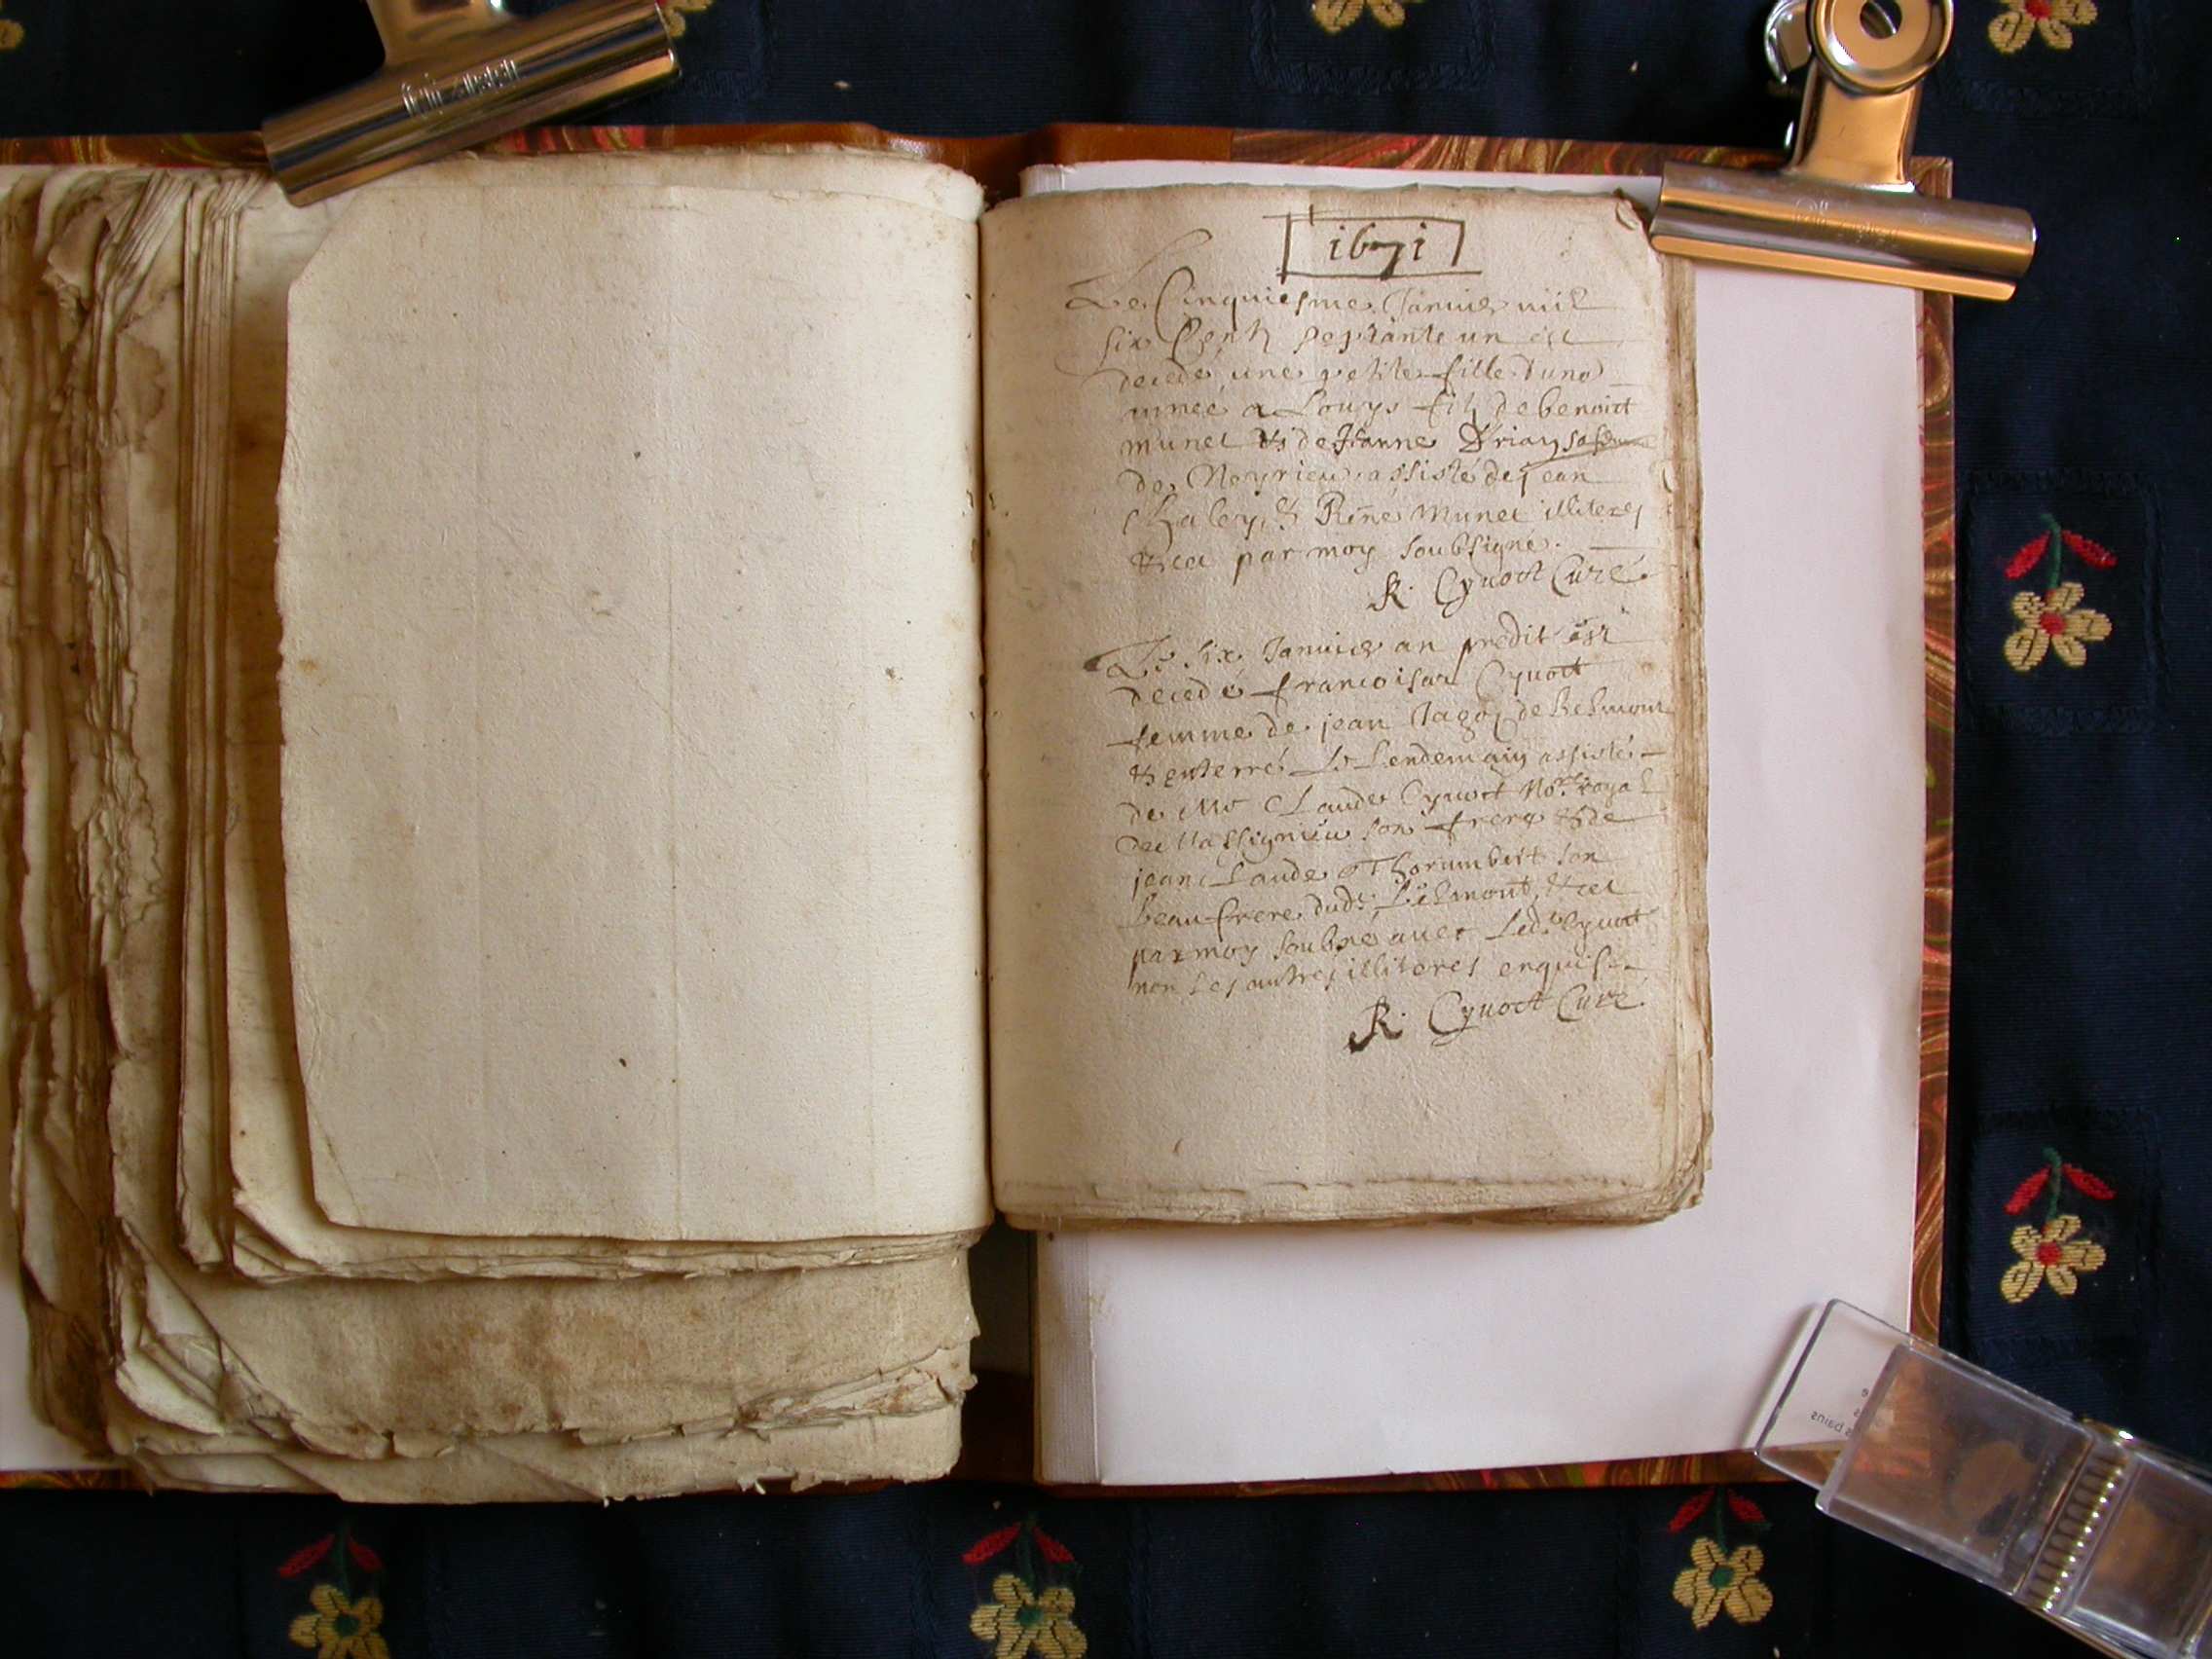 1671
Le Cinquiesme Januier mil
six Cents septante un est
decede une petite fille d'uno
mmee a Louys filz de benoict
munet & de Jeanne Briay sa femme
de Neyrieu assisté de jean
Chaley & Rene munet illiteres
& ce par moy soubsigne.
R. Cynoct Curé
Le six Januier an predit est
decedé francoisaz Cynoct
femme de jean Jagoz de belmont
& enterré Le Lendemain assisté
de Mr Claude Cynoct Nore. royal
de Massignieu son frere & de
jean Claude Thorumbert son
beau frere dudt. belmont, & ce
par moy soubne auec Ledt. Cynoct
non les autres illiteres enquis
R. Cynoct Curé